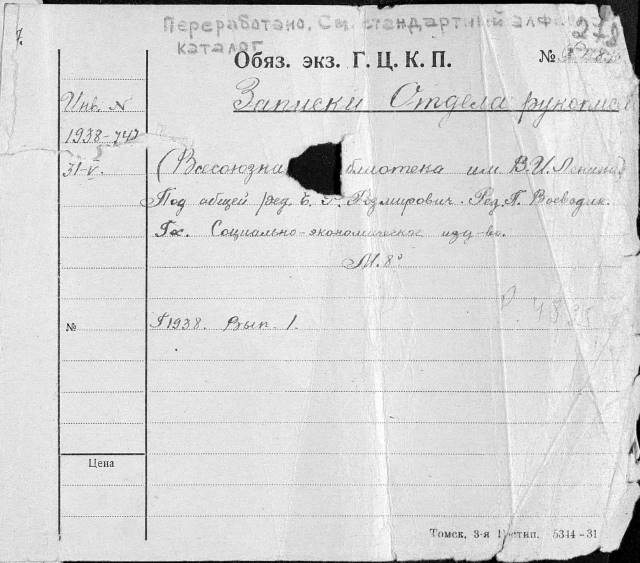 Переработано. См. стандартный алфа
каталог
Обяз. экз. Г. Ц. К. П.
№
Записки Отдела рукопис
Инв. N
1938-742
31-V.
(Всесоюзна блиотека им. В.И. Ленина
Под общей ред. Е. Ф. Розмирович. Ред. П. Воеводин.
Гос. Социально-экономическое изд-во.
М. 8°
4835
№
1938. Вып. 1.
Цена
Томск, 3-я Гостип. 5344-31